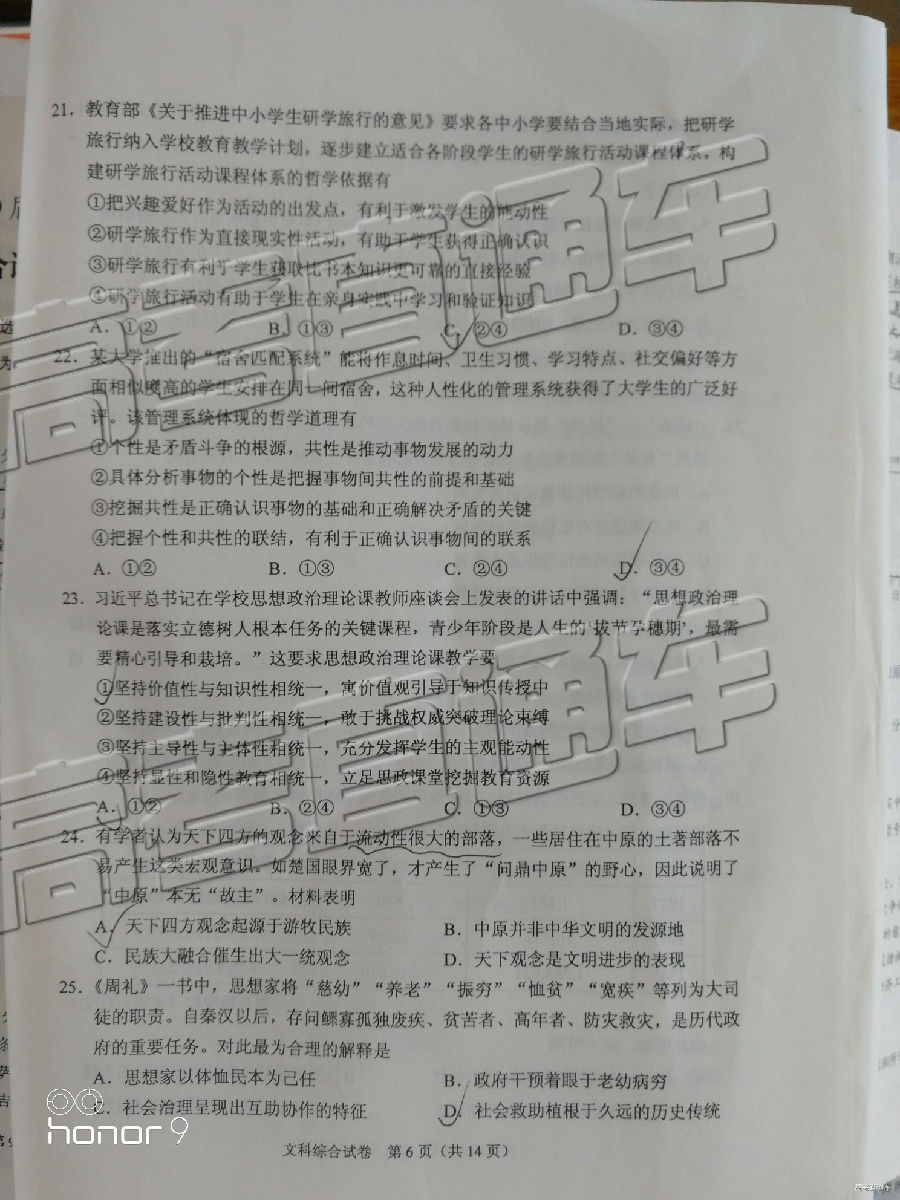 21．教育部《关于推进中小学生研学旅行的意见》要求各中小学要结合当地实际，把研学
旅行纳入学校教育教学计划，逐步建立适合各阶段学生的研学旅行活动课程体系。构
建研学旅行活动课程体系的哲学依据有
①把兴趣爱好作为活动的出发点，有利于激发学生的能动性
②研学旅行作为直接现实性活动，有助于学生获得正确认识
③研学旅行有利于学生获取比书本知识更可靠的直接经验
④研学旅行活动有助于学生在亲身实践中学习和验证知识
A．①② B．①③ C．②④ D．③④
22．某大学推出的“宿舍匹配系统”能将作息时间、卫生习惯、学习特点、社交偏好等方
面相似度高的学生安排在同一间宿舍，这种人性化的管理系统获得了大学生的广泛好
评。该管理系统体现的哲学道理有
①个性是矛盾斗争的根源，共性是推动事物发展的动力
②具体分析事物的个性是把握事物间共性的前提和基础
③挖掘共性是正确认识事物的基础和正确解决矛盾的关键
④把握个性和共性的联结，有利于正确认识事物间的联系
A．①② B．①③ C．②④ D．③④
23．习近平总书记在学校思想政治理论课教师座谈会上发表的讲话中强调：“思想政治理
论课是落实立德树人根本任务的关键课程，青少年阶段是人生的‘拔节孕穗期’，最需
要精心引导和栽培。”这要求思想政治理论课教学要
①坚持价值性与知识性相统一，寓价值观引导于知识传授中
②坚持建设性与批判性相统一，敢于挑战权威突破理论束缚
③坚持主导性与主体性相统一，充分发挥学生的主观能动性
④坚持显性和隐性教育相统一，立足思政课堂挖掘教育资源
A．①② B．②④ C．①③ D．③④
24．有学者认为天下四方的观念来自于流动性很大的部落，一些居住在中原的土著部落不
易产生这类宏观意识。如楚国眼界宽了，才产生了“问鼎中原”的野心，因此说明了
“中原”本无“故主”。材料表明
A．天下四方观念起源于游牧民族 B．中原并非中华文明的发源地
C．民族大融合催生出大一统观念 D．天下观念是文明进步的表现
25．《周礼》一书中，思想家将“慈幼”“养老”“振穷”“恤贫”“宽疾”等列为大司
徒的职责。自秦汉以后，存问鳏寡孤独废疾、贫苦者、高年者、防灾救灾，是历代政
府的重要任务。对此最为合理的解释是
A．思想家以体恤民本为己任 B．政府干预着眼于老幼病穷
C．社会治理呈现出互助协作的特征 D．社会救助植根于久远的历史传统
文科综合试卷 第 6 页（共 14 页）
高考直通车
高考直通车
honor 9